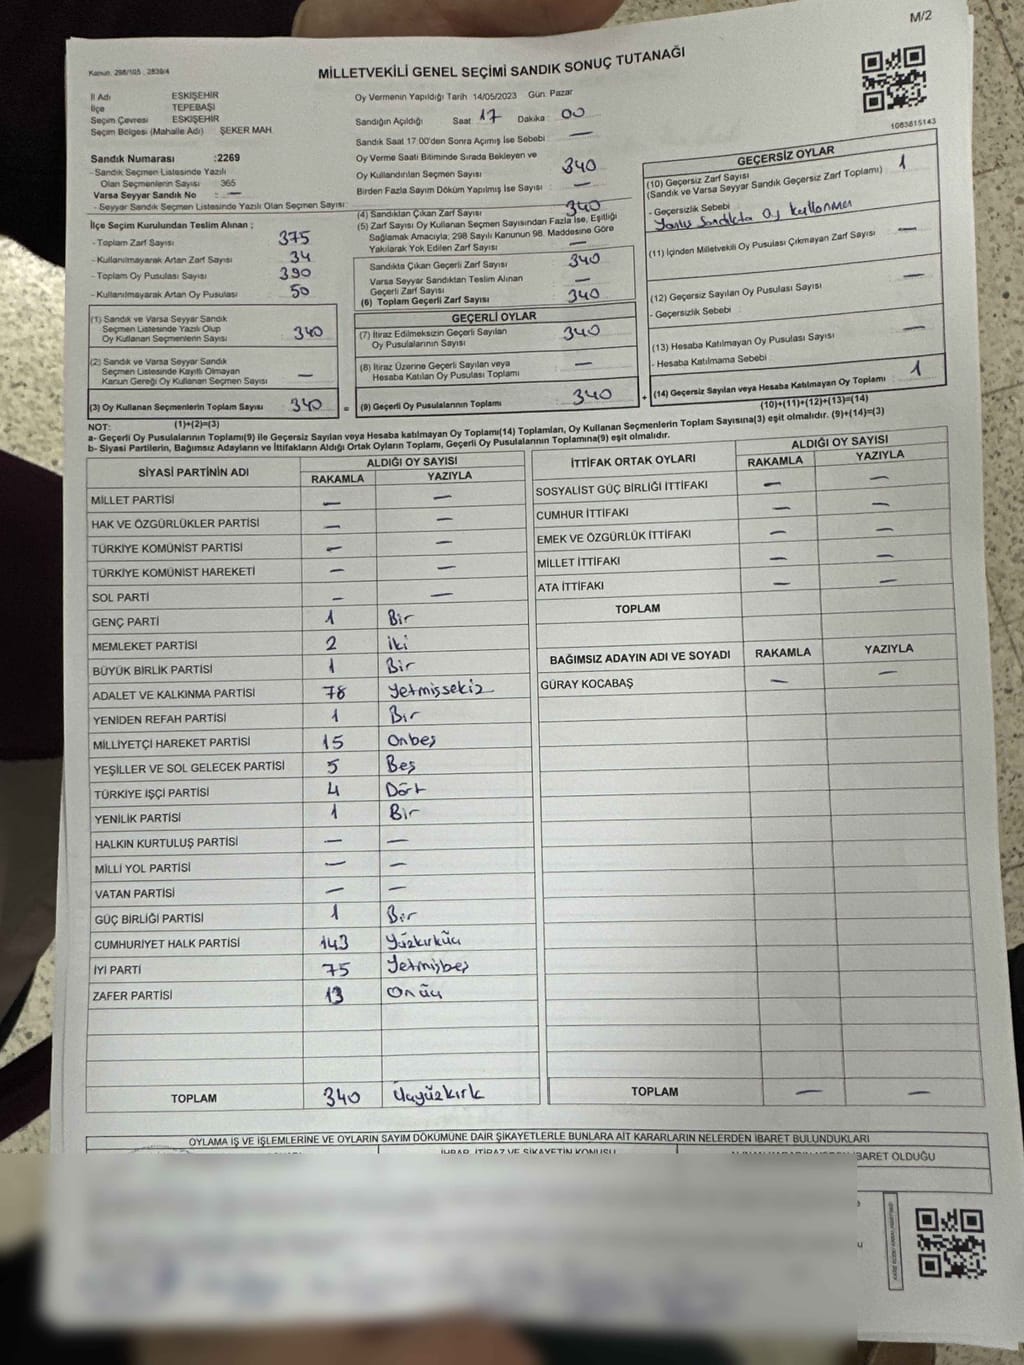 M/2
Kanun: 298/105 : 2839/4
MİLLETVEKİLİ GENEL SEÇİMİ SANDIK SONUÇ TUTANAĞI
1083615143
İl Adı ESKİŞEHİR
İlçe TEPEBAŞI
Seçim Çevresi ESKİŞEHİR
Seçim Bölgesi (Mahalle Adı) ŞEKER MAH.
Sandık Numarası :2269
- Sandık Seçmen Listesinde Yazılı
Olan Seçmenlerin Sayısı 365
Varsa Seyyar Sandık No : —
- Seyyar Sandık Seçmen Listesinde Yazılı Olan Seçmen Sayısı:
İlçe Seçim Kurulundan Teslim Alınan ;
- Toplam Zarf Sayısı 375
- Kullanılmayarak Artan Zarf Sayısı 34
- Toplam Oy Pusulası Sayısı 390
- Kullanılmayarak Artan Oy Pusulası 50
(1) Sandık ve Varsa Seyyar Sandık
Seçmen Listesinde Yazılı Olup
Oy Kullanan Seçmenlerin Sayısı 340
(2) Sandık ve Varsa Seyyar Sandık
Seçmen Listesinde Kayıtlı Olmayan
Kanun Gereği Oy Kullanan Seçmen Sayısı —
(3) Oy Kullanan Seçmenlerin Toplam Sayısı 340 =
Oy Vermenin Yapıldığı Tarih 14/05/2023 Gün: Pazar
Sandığın Açıldığı Saat 17 Dakika : 00
Sandık Saat 17:00'den Sonra Açımış İse Sebebi : —
Oy Verme Saati Bitiminde Sırada Bekleyen ve
Oy Kullandırılan Seçmen Sayısı 340
Birden Fazla Sayım Döküm Yapılmış İse Sayısı : —
(4) Sandıktan Çıkan Zarf Sayısı 340
(5) Zarf Sayısı Oy Kullanan Seçmen Sayısından Fazla İse, Eşitliği
Sağlamak Amacıyla; 298 Sayılı Kanunun 98. Maddesine Göre
Yakılarak Yok Edilen Zarf Sayısı —
Sandıkta Çıkan Geçerli Zarf Sayısı 340
Varsa Seyyar Sandıktan Teslim Alınan
Geçerli Zarf Sayısı —
(6) Toplam Geçerli Zarf Sayısı 340
GEÇERLİ OYLAR
(7) İtiraz Edilmeksizin Geçerli Sayılan
Oy Pusulalarının Sayısı 340
(8) İtiraz Üzerine Geçerli Sayılan veya
Hesaba Katılan Oy Pusulası Toplamı —
(9) Geçerli Oy Pusulalarının Toplamı 340 +
GEÇERSİZ OYLAR
(10) Geçersiz Zarf Sayısı 1
(Sandık ve Varsa Seyyar Sandık Geçersiz Zarf Toplamı)
- Geçersizlik Sebebi :
Yanlış Sandıkta Oy kullanması
(11) İçinden Milletvekili Oy Pusulası Çıkmayan Zarf Sayısı —
(12) Geçersiz Sayılan Oy Pusulası Sayısı —
- Geçersizlik Sebebi :
(13) Hesaba Katılmayan Oy Pusulası Sayısı —
- Hesaba Katılmama Sebebi :
(14) Geçersiz Sayılan veya Hesaba Katılmayan Oy Toplamı : 1
NOT: (1)+(2)=(3) (10)+(11)+(12)+(13)=(14)
a- Geçerli Oy Pusulaları Toplamı(9) ile Geçersiz Sayılan veya Hesaba katılmayan Oy Toplamı(14) Toplamları, Oy Kullanan Seçmenlerin Toplam Sayısına(3) eşit olmalıdır. (9)+(14)=(3)
b- Siyasi Partilerin, Bağımsız Adayların ve İttifakların Aldığı Ortak Oyların Toplamı, Geçerli Oy Pusulalarının Toplamına(9) eşit olmalıdır.
SİYASİ PARTİNİN ADI ALDIĞI OY SAYISI
RAKAMLA YAZIYLA
MİLLET PARTİSİ — —
HAK VE ÖZGÜRLÜKLER PARTİSİ — —
TÜRKİYE KOMÜNİST PARTİSİ — —
TÜRKİYE KOMÜNİST HAREKETİ — —
SOL PARTİ — —
GENÇ PARTİ 1 Bir
MEMLEKET PARTİSİ 2 iki
BÜYÜK BİRLİK PARTİSİ 1 Bir
ADALET VE KALKINMA PARTİSİ 78 Yetmişsekiz
YENİDEN REFAH PARTİSİ 1 Bir
MİLLİYETÇİ HAREKET PARTİSİ 15 Onbeş
YEŞİLLER VE SOL GELECEK PARTİSİ 5 Beş
TÜRKİYE İŞÇİ PARTİSİ 4 Dört
YENİLİK PARTİSİ 1 Bir
HALKIN KURTULUŞ PARTİSİ — —
MİLLİ YOL PARTİSİ — —
VATAN PARTİSİ — —
GÜÇ BİRLİĞİ PARTİSİ 1 Bir
CUMHURİYET HALK PARTİSİ 143 Yüzkırküç
İYİ PARTİ 75 Yetmişbeş
ZAFER PARTİSİ 13 Onüç
TOPLAM 340 Üçyüzkırk
İTTİFAK ORTAK OYLARI ALDIĞI OY SAYISI
RAKAMLA YAZIYLA
SOSYALİST GÜÇ BİRLİĞİ İTTİFAKI — —
CUMHUR İTTİFAKI — —
EMEK VE ÖZGÜRLÜK İTTİFAKI — —
MİLLET İTTİFAKI — —
ATA İTTİFAKI — —
TOPLAM
BAĞIMSIZ ADAYIN ADI VE SOYADI RAKAMLA YAZIYLA
GÜRAY KOCABAŞ — —
TOPLAM — —
OYLAMA İŞ VE İŞLEMLERİNE VE OYLARIN SAYIM DÖKÜMÜNE DAİR ŞİKAYETLERLE BUNLARA AİT KARARLARIN NELERDEN İBARET BULUNDUKLARI
İHBAR, İTİRAZ VE ŞİKAYETİN KONUSU
İBARET OLDUĞU